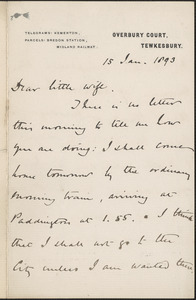 TELEGRAMS: KEMERTON,
PARCELS: BREDON STATION,
MIDLAND RAILWAY.
OVERBURY COURT,
TEWKESBURY.
15 Jan. 1893
Dear little wife.
There is no letter
this morning to tell me how
you are doing: I shall come
home tomorrow by the ordinary
morning train, arriving at
Paddington at 1.55. & I think
that I shall not go to the
City unless I am wanted there